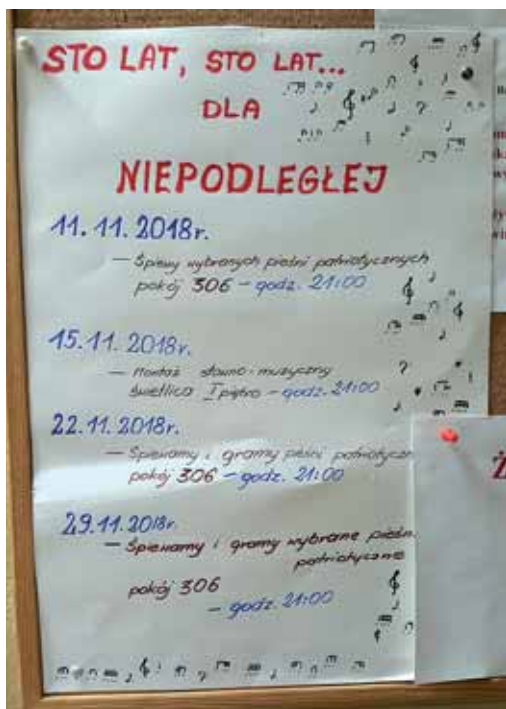 STO LAT, STO LAT...
DLA
NIEPODLEGŁEJ
11.11.2018r.
– Śpiewy wybranych pieśni patriotycznych
pokój 306 – godz. 21:00
15.11.2018r.
– Montaż słowno-muzyczny
świetlica I piętro – godz. 21:00
22.11.2018r.
– Śpiewamy i gramy pieśni patriotyczn
pokój 306 – godz. 21:00
29.11.2018r.
– Śpiewamy i gramy wybrane pieśn
patriotyczne
pokój 306
– godz. 21:00
Ż